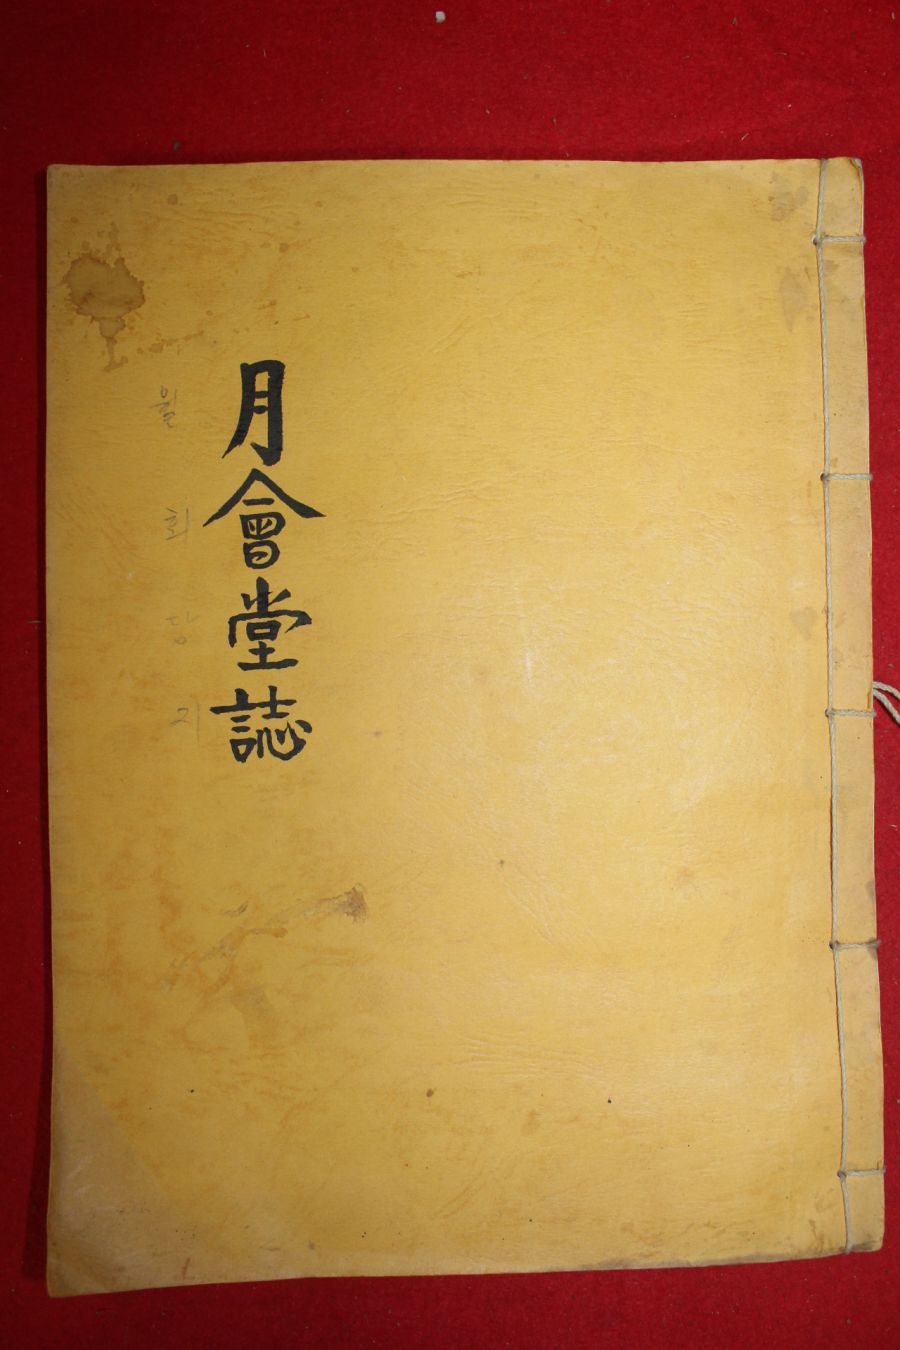 月會堂誌
월회당지